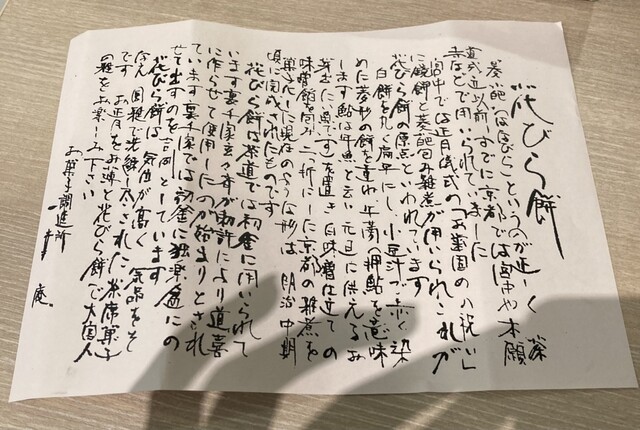 花びら餅
葵葩(はなびら)というのが正しく 茶
道成立以前すでに京都では宮中や本願
寺などで用いられていました
宮中では正月儀式の「お歯固の祝い」
に鏡餅と菱葩包み雑煮が用いられこれが
花びら餅の原点といわれています
白餅を丸く扁平にし小豆汁で赤く染
めた菱形の餅を重ね牛蒡(押鮎を意味
します鮎は年魚と云い元旦に供えるお
めでたい魚です)を置き白味噌仕立ての
味噌餡を包み二つ折にした京都の雑煮を
菓子化した現在のような形は 明治中期
頃に完成されたものです
花びら餅は茶道では初釜に用いられて
います裏千家玄々斎が勅許により道喜
に作らせて使用したのが始まりとされ
ています裏千家では初釜に独楽盆にの
せて出すのを吉例としています
花びら餅は気位が高く 気品をそ
なえ 固雅で洗練し太された 茶席菓子
です お正月をお薄と花びら餅で大宮人
の雅をお楽しみ下さい
お菓子調進所
一幸庵